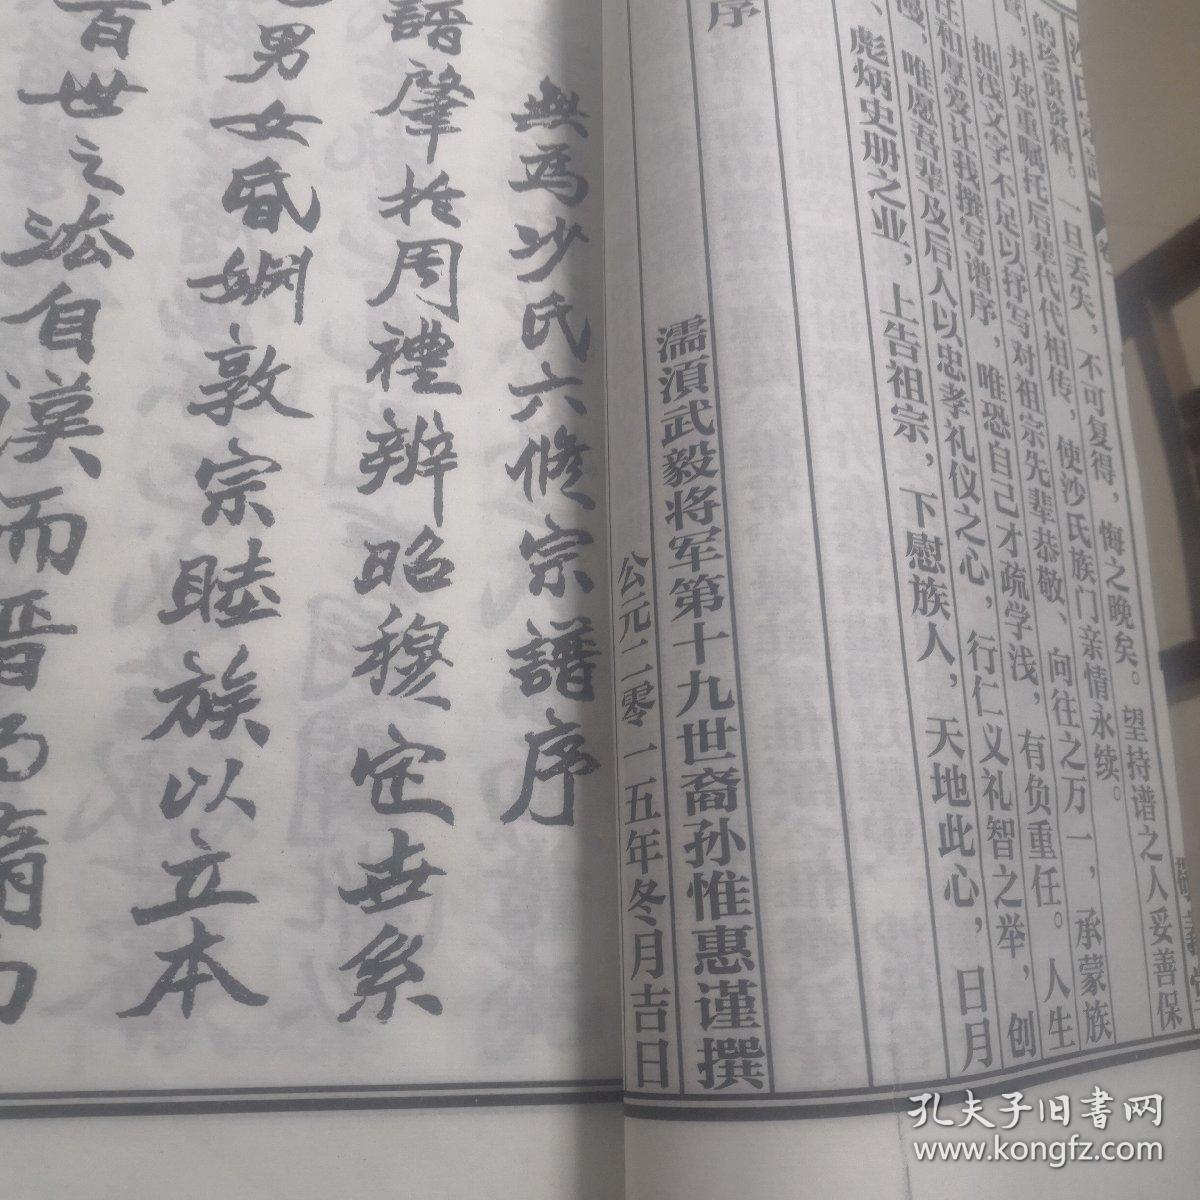 望持谱之人妥善保
的珍贵资料。一旦丢失，不可复得，悔之晚矣。
管，并郑重嘱托后辈代代相传，使沙氏族门亲情永续。
拙浅文字不足以抒写对祖宗先辈恭敬、向往之万一，承蒙族
任和厚爱让我撰写谱序，唯恐自己才疏学浅，有负重任。人生
漫，唯愿吾辈及后人以忠孝礼仪之心，行仁义礼智之举，创
、彪炳史册之业，上告祖宗，下慰族人，天地此心，日月
序
濡須武毅将军第十九世裔孙惟惠谨撰
公元二零一五年冬月吉日
無為沙氏六修宗譜序
譜肇於周禮辨昭穆定世系
男女昏姻敦宗睦族以立本
百世之法自漢而晉而隋
孔夫子旧书网
www.kongfz.com